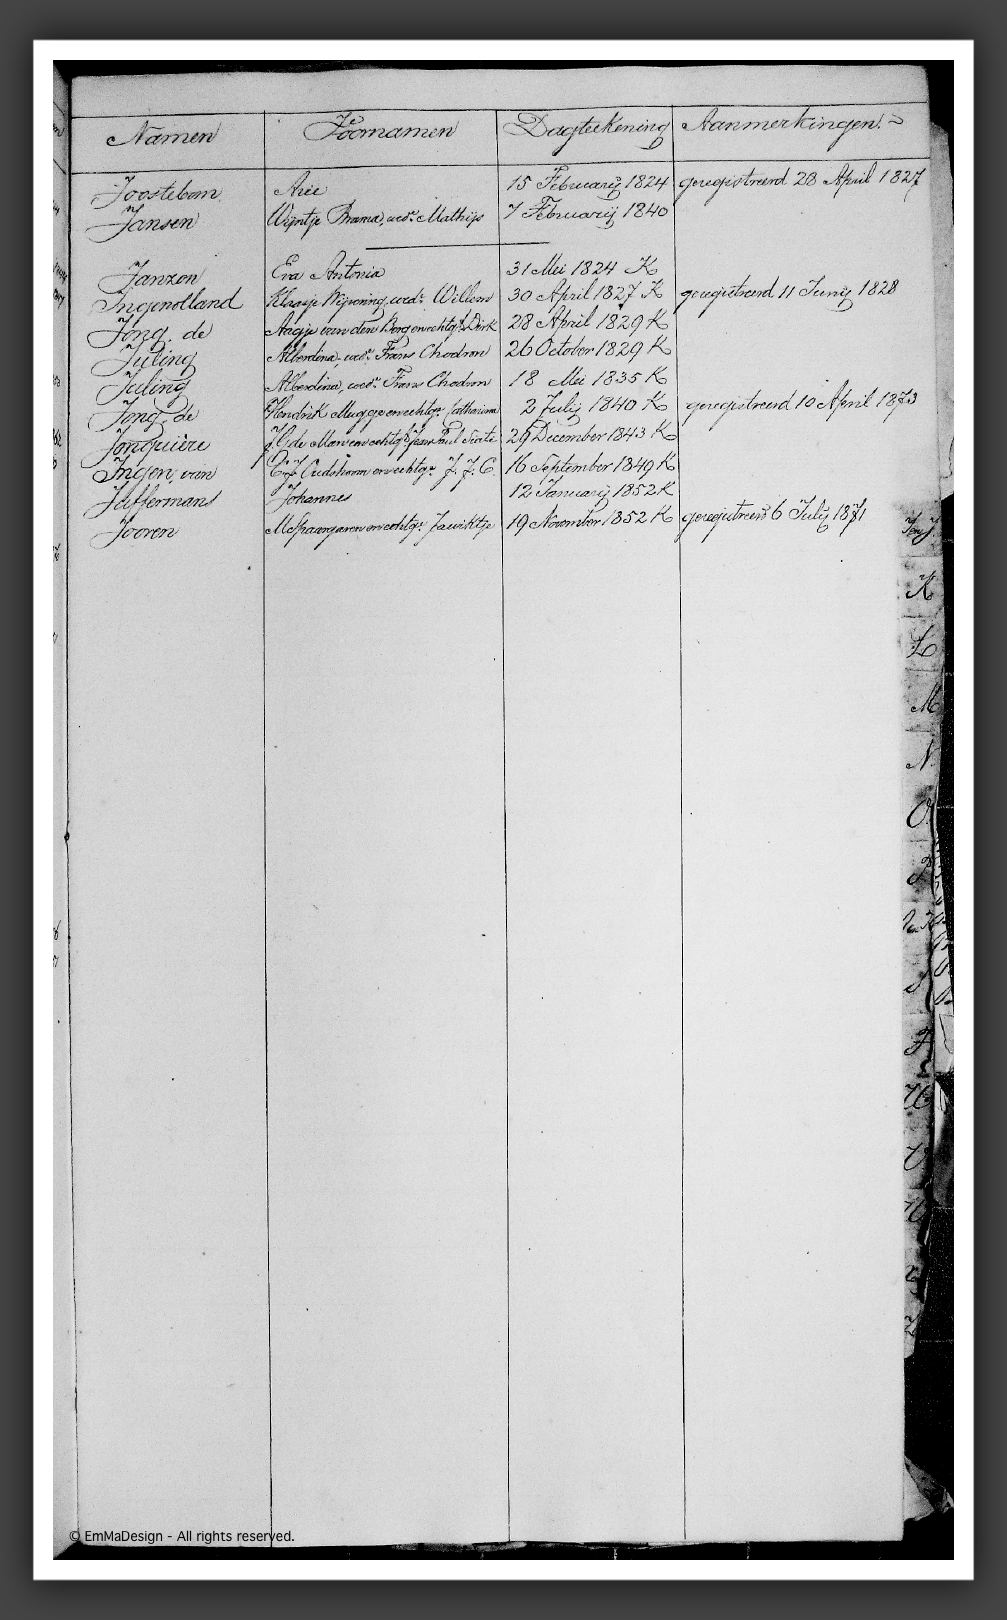 Namen Voornamen Dagteekening Aanmerkingen
Joostebom Arie 15 Februarij 1824 geregistreerd 28 April 1827
Jansen Wijntje Brama, wed.e Mathijs 7 Februarij 1840
Janzon Eva Antonia 31 Mei 1824 K
Ingenolland Klaasje Wijnening, wed.e Willem 30 April 1827 K geregistreerd 11 Junij 1828
Jong, de Aagje van den Berg en echtg.t Dirk 28 April 1829 K
Juling Alberdina, wed.e Frans Chodron 26 October 1829 K
Juling Alberdina, wed.e Frans Chodron 18 Mei 1835 K
Jong, de Hendrik Mugge en echtge. Catharina 2 Julij 1840 K geregistreerd 10 April 1873
Jonquière de Man en echtg.t Paul 29 December 1843 K
Ingen, van Oudshoorn en echtge. J. J. C. 16 September 1849 K
Juffermans Johannes 12 Januarij 1852 K
Jooren M Spaargaren en echtge. 19 November 1852 K geregistreerd 6 Julij 1871
K
L
M
N
O
© EmMaDesign - All rights reserved.